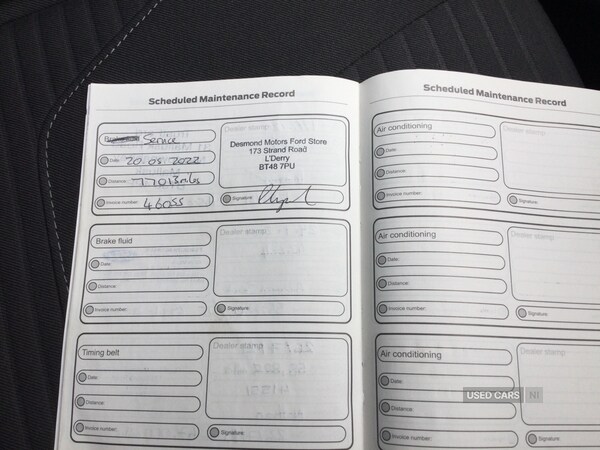 Scheduled Maintenance Record
Service
Dealer stamp
Date: 20.05.2022
Distance: 77013 miles
Invoice number: 46055
Desmond Motors Ford Store
173 Strand Road
L'Derry
BT48 7PU
Signature:
Brake fluid
Dealer stamp
Date:
Distance:
Invoice number:
Signature:
Timing belt
Dealer stamp
Date:
Distance:
Invoice number:
Signature:
Scheduled Maintenance Record
Air conditioning
Dealer stamp
Date:
Distance:
Invoice number:
Signature:
Air conditioning
Dealer stamp
Date:
Distance:
Invoice number:
Signature:
Air conditioning
Dealer stamp
Date:
Distance:
Invoice number:
Signature:
USED CARS NI